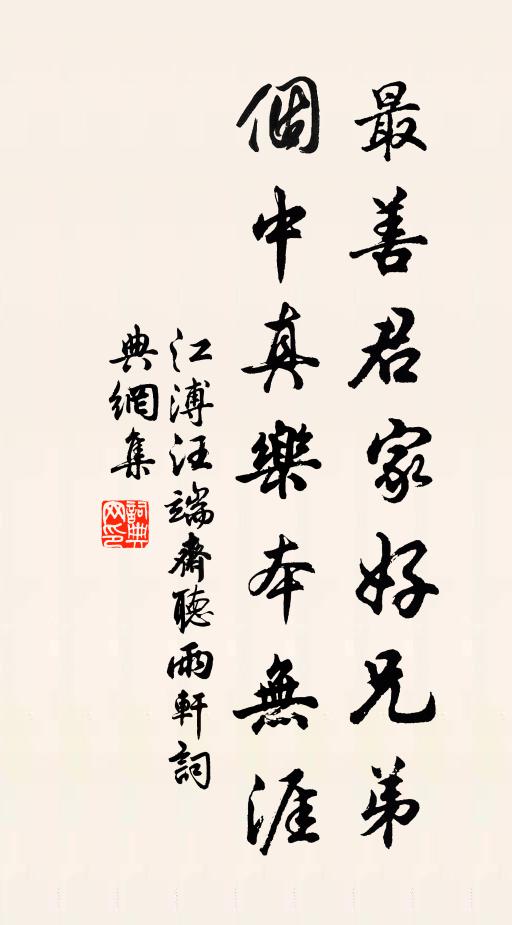 最善君家好兄弟
個中真樂本無涯
江溥汪端齋聽雨軒詞
典網集
詞典网印